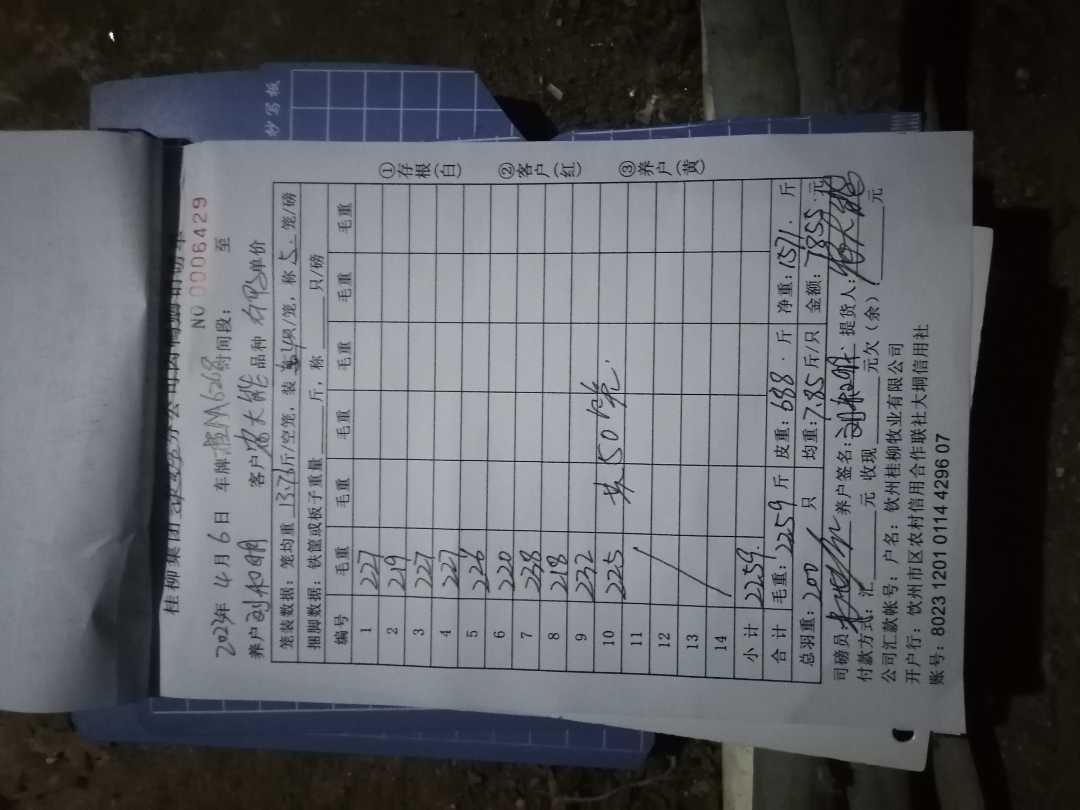 抄写板
桂柳集团
NO 0006429
2024年 4月 6日 车牌 时间段: 至
养户 刘和明 客户 品种 单价
笼装数据: 笼均重 13.76 斤/空笼, 装 4 只/笼, 称 5 笼/磅
捆脚数据: 铁筐或板子重量 斤, 称 只/磅
编号 毛重 毛重 毛重 毛重 毛重 毛重
1 227
2 219
3 227
4 227
5 226
6 220
7 238
8 218
9 232
10 225 共50笼.
11
12
13
14
小计 2259.
合计 毛重: 2259 斤 皮重: 688. 斤 净重: 1571. 斤
总羽重: 200 只 均重: 7.85 斤/只 金额: 7855. 元
司磅员 养户签名: 刘和明 提货人:
付款方式: 汇 元 收现 元欠(余) 元
公司汇款帐号: 户名: 钦州桂柳牧业有限公司
开户行: 钦州市区农村信用合作联社大垌信用社
账号: 8023 1201 0114 4296 07
①存根(白) ②客户(红) ③养户(黄)